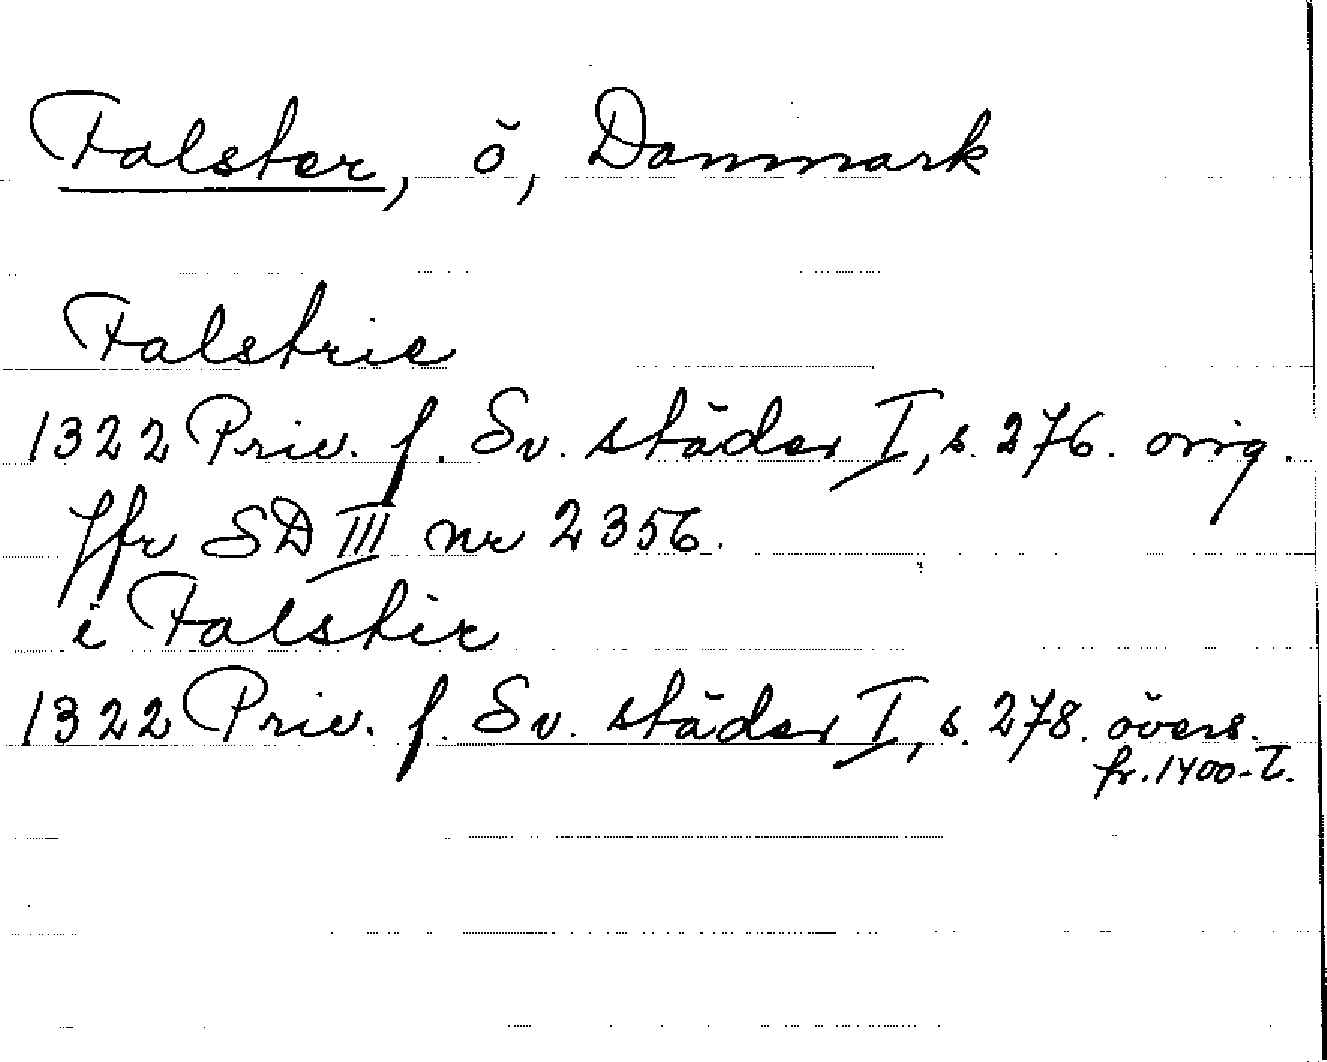 Falster, ö, Danmark
Falstrie
1322 Priv. f. Sv. städer I, s. 276. orig.
Jfr SD III nr 2356.
i Falstir
1322 Priv. f. Sv. städer I, s. 278. övers.
fr. 1400-t.